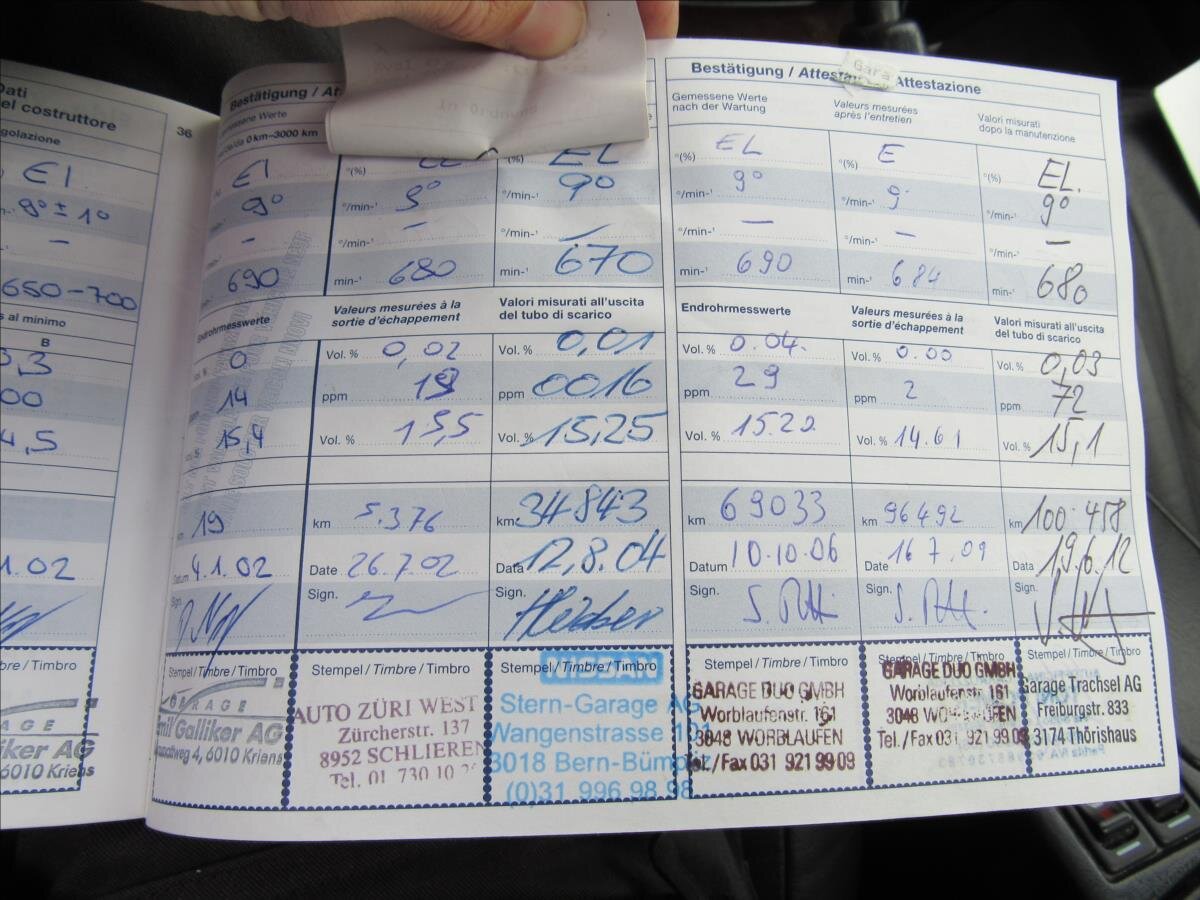 Dati
del costruttore
golazione
EI
9° ± 1°
–
650-700
s al minimo
B
3,3
00
4,5
1.02
bre / Timbro
AGE
lliker AG
6010 Kriens
36
Bestätigung /
Gemessene Werte
0 km–3000 km
EI
9°
–
690
Endrohrmesswerte
0
14
15,4
19
Datum 4.1.02
Sign.
Stempel / Timbre / Timbro
GARAGE
Emil Galliker AG
6010 Kriens
°/min-¹ 9°
°/min-¹ –
min-¹ 680
Valeurs mesurées à la
sortie d'échappement
Vol. % 0,02
ppm 19
Vol. % 15,5
km 5.376
Date 26.7.02
Sign.
Stempel / Timbre / Timbro
AUTO ZÜRI WEST
Zürcherstr. 137
8952 SCHLIEREN
Tel. 01 730 10
°(%) EL
°/min-¹ 9°
°/min-¹ –
min-¹ 670
Valori misurati all'uscita
del tubo di scarico
Vol. % 0,01
ppm 0016
Vol. % 15,25
km 34843
Data 12,8.04
Stempel / Timbre / Timbro
NISSAN
Stern-Garage AG
Wangenstrasse
3018 Bern-Bümpliz
(0)31 996 98 98
Bestätigung / Attestation / Attestazione
Gara
Gemessene Werte
nach der Wartung
°(%) EL
°/min-¹ 9°
°/min-¹ –
min-¹ 690
Endrohrmesswerte
Vol. % 0.04
ppm 29
Vol. % 15.22
km 69033
Datum 10.10.06
Sign.
Stempel / Timbre / Timbro
GARAGE DUO GMBH
Worblaufenstr. 161
3048 WORBLAUFEN
Tel./Fax 031 921 99 09
Valeurs mesurées
après l'entretien
°(%) E
°/min-¹ 9°
°/min-¹ –
min-¹ 684
Valeurs mesurées à la
sortie d'échappement
Vol. % 0.00
ppm 2
Vol. % 14.61
km 96492
Date 16 7.09
Sign.
Stempel / Timbre / Timbro
GARAGE DUO GMBH
Worblaufenstr. 161
3048 WORBLAUFEN
Tel./Fax 031 921 99 09
Valori misurati
dopo la manutenzione
°(%) EL.
°/min-¹ 9°
°/min-¹ –
min-¹ 680
Valori misurati all'uscita
del tubo di scarico
Vol. % 0,03
ppm 72
Vol. % 15,1
km 100 458
Data 19.6.12
Sign.
Stempel / Timbre / Timbro
Garage Trachsel AG
Freiburgstr. 833
3174 Thörishaus